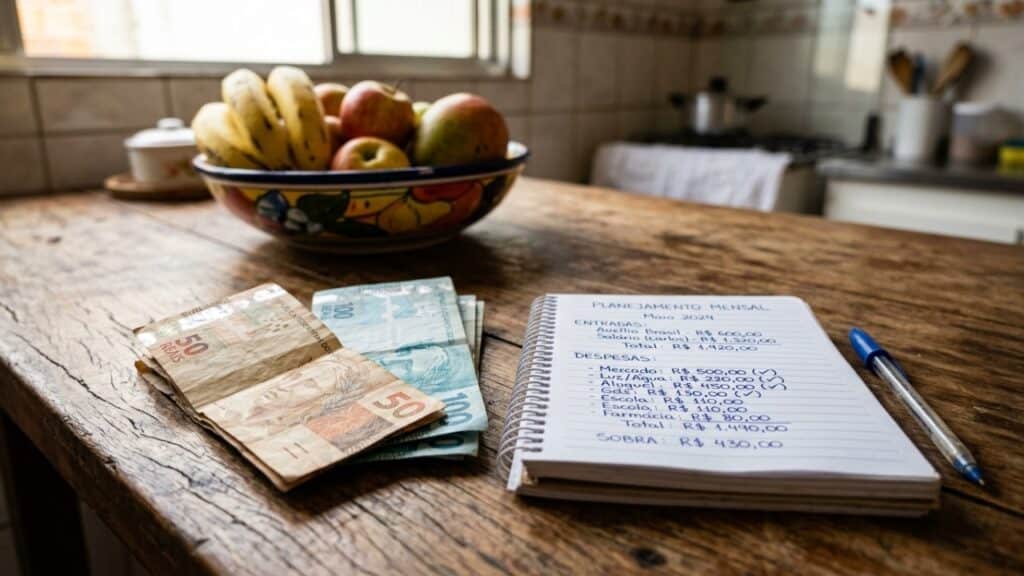 50
REAIS
50
100
100
PLANEJAMENTO MENSAL
Maio 2024
ENTRADAS:
Auxílio Brasil - R$ 600,00
Salário (Carlos) - R$ 1.320,00
Total: R$ 1.420,00
DESPESAS:
- Mercado: R$ 500,00 (✓)
- Luz/Água: R$ 230,00 (✓)
- Aluguel: R$ 450,00 (✓)
- Gás: R$ 130,00 (✓)
- Escola: R$ 110,00
- Escola: R$ 110,00
- Farmácia: R$ 80,00
Total: R$ 1.490,00
SOBRA: R$ 430,00